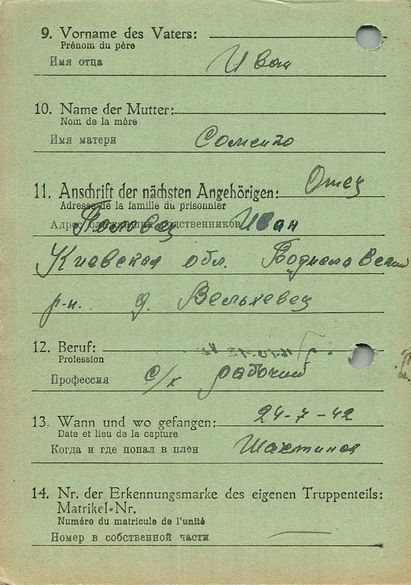 9. Vorname des Vaters:
Prénom du père
Имя отца Иван
10. Name der Mutter:
Nom de la mère
Имя матери
11. Anschrift der nächsten Angehörigen: Отец
Adresse de la famille du prisonnier
Иван
Киевская обл.
р-н. д.
12. Beruf:
Profession
Профессия с/х рабочий
13. Wann und wo gefangen: 24-7-42
Date et lieu de la capture
Когда и где попал в плен
14. Nr. der Erkennungsmarke des eigenen Truppenteils:
Matrikel-Nr.
Numéro du matricule de l'unité
Номер в собственной части —